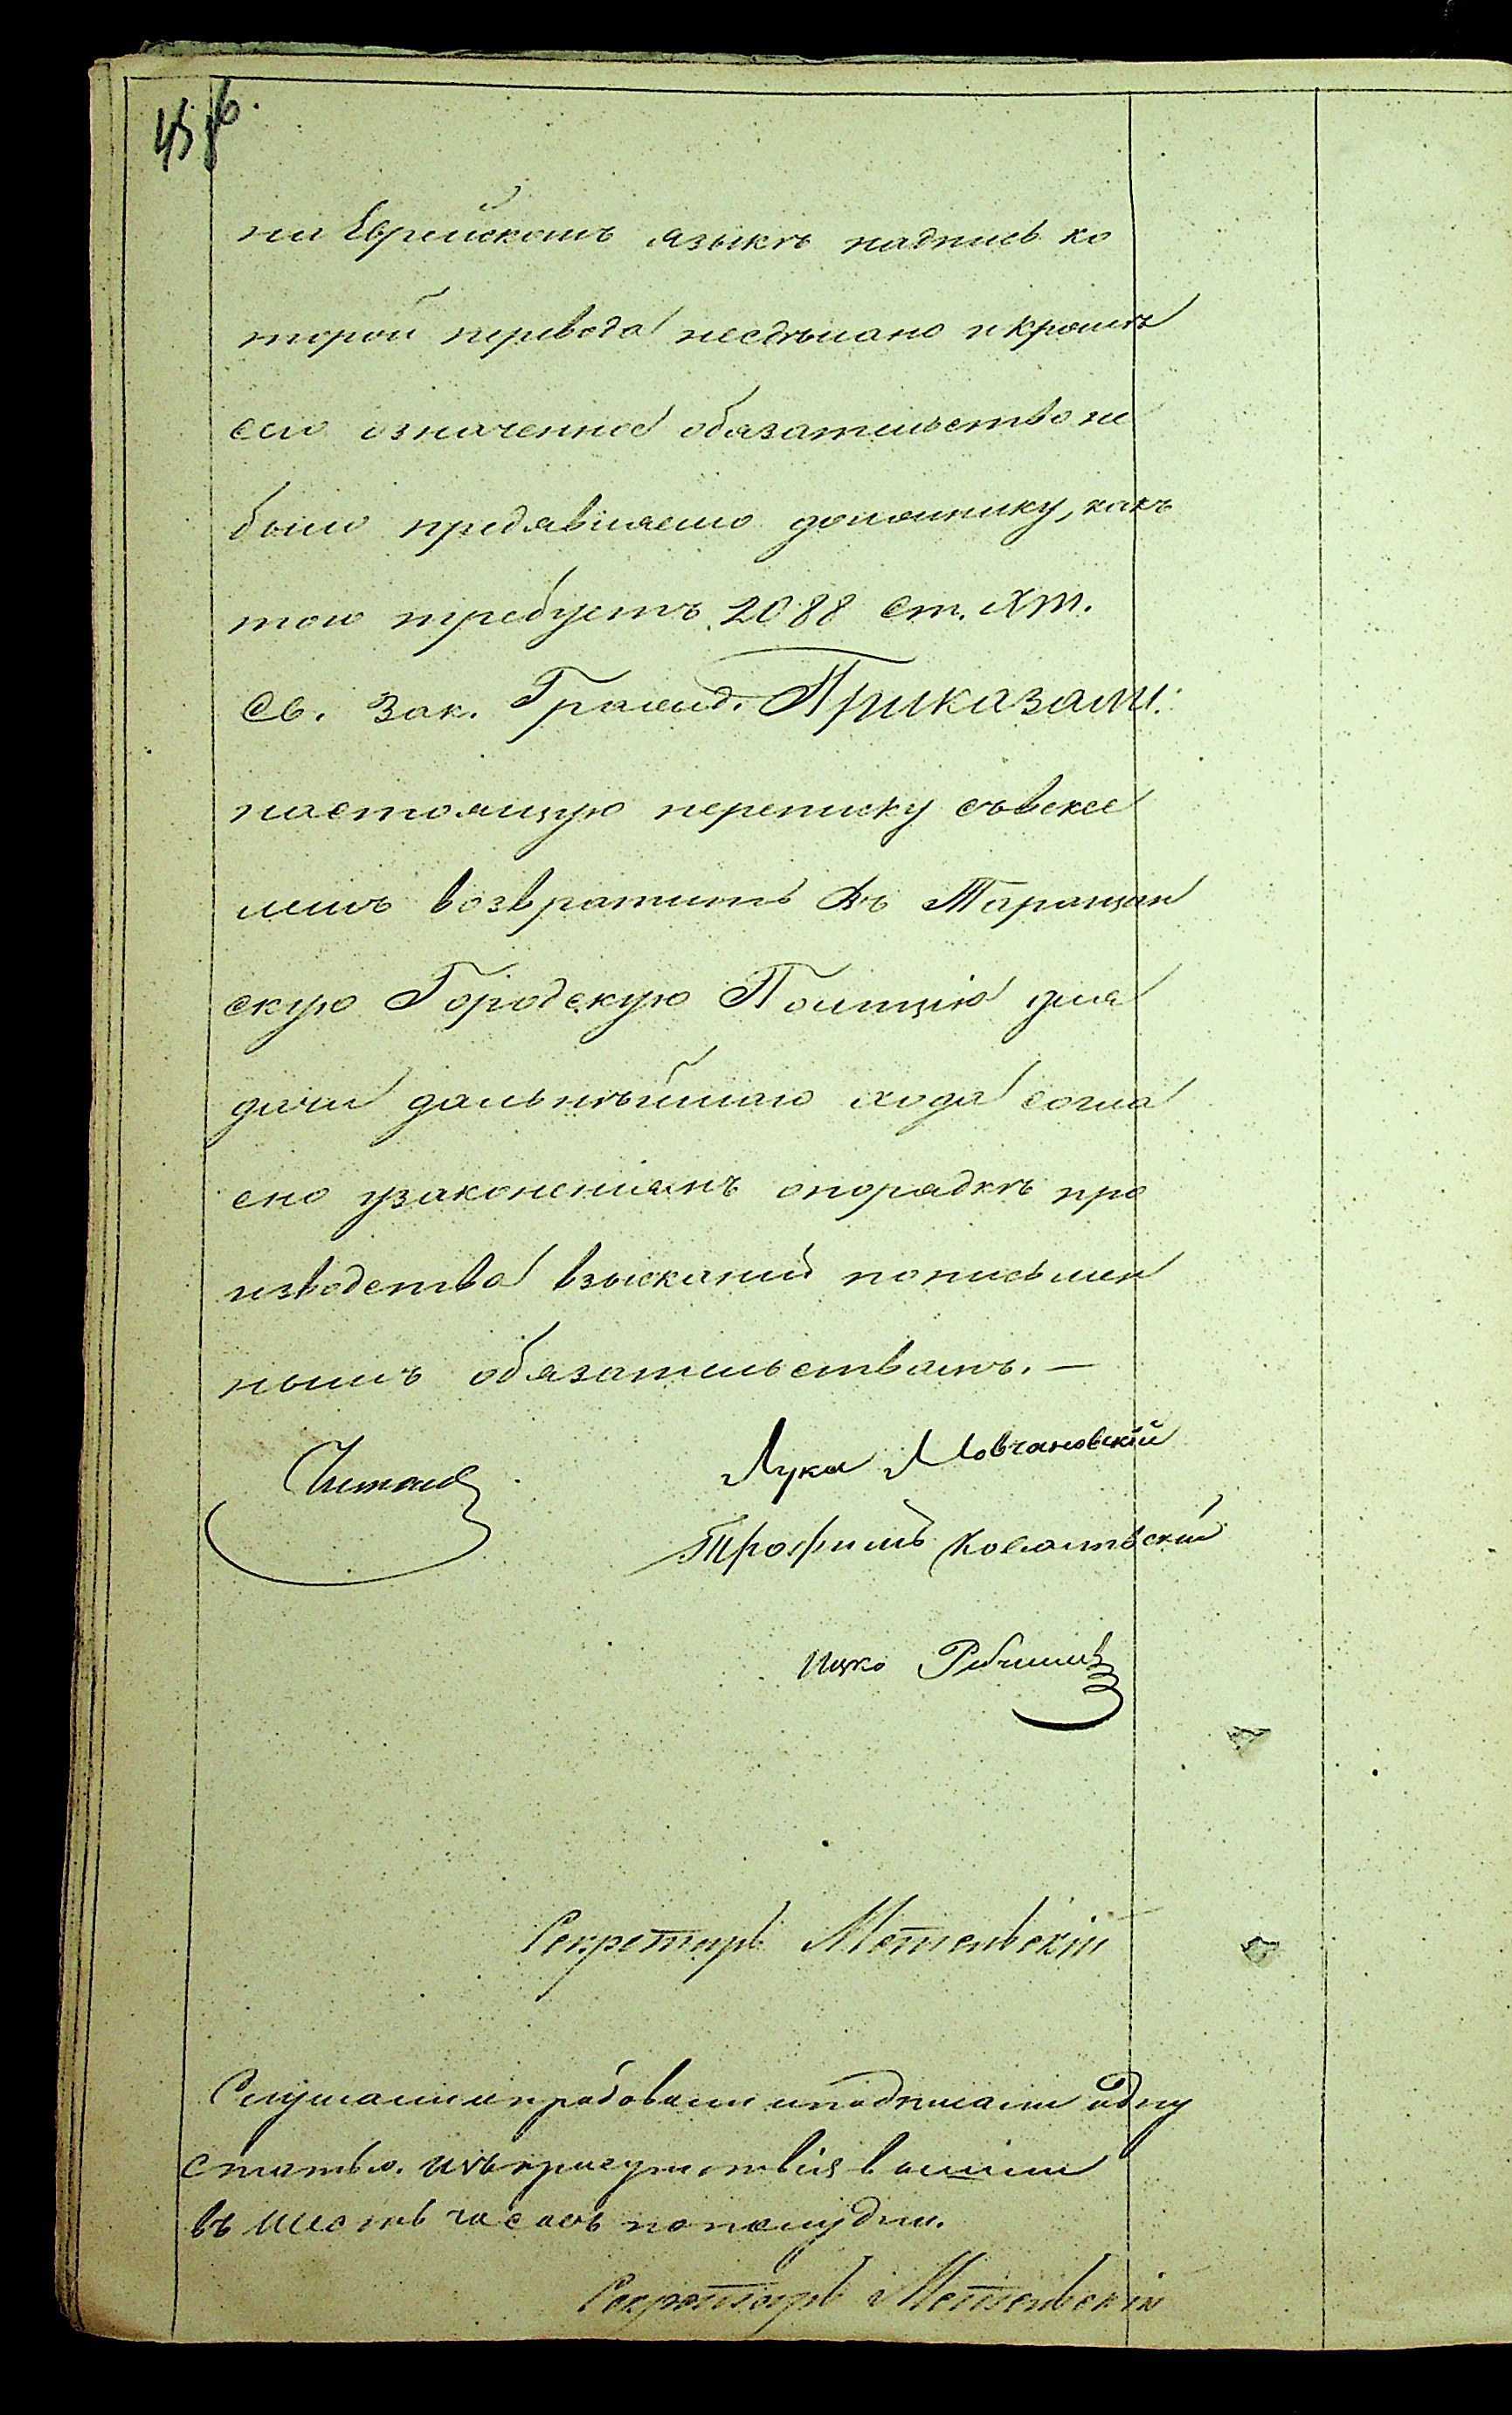 45 об.
на Еврейскомъ языкѣ надпись ко
торой перевода несдѣлано и кромѣ
сего означенное обязательство не
было предявляемо должнику, какъ
того требуетъ 2088 ст. Хт.
Св. Зак. Гражд. Приказали:
настоящую переписку съ вексе
лемъ возвратить въ Таращан
скую Городскую Полицію для
дачи дальнѣйшаго хода согла
сно узаконеніямъ опорядкѣ про
изводства взысканій пописьмен
нымъ обязательствамъ. —
Читалъ
Лука Мовчановскій
Трофимъ
Ицко
Секретарь
Слушали и пробовали иподписали одну
статью. Изъ присутствія вышли
въ шесть часовъ пополудни.
Секретарь